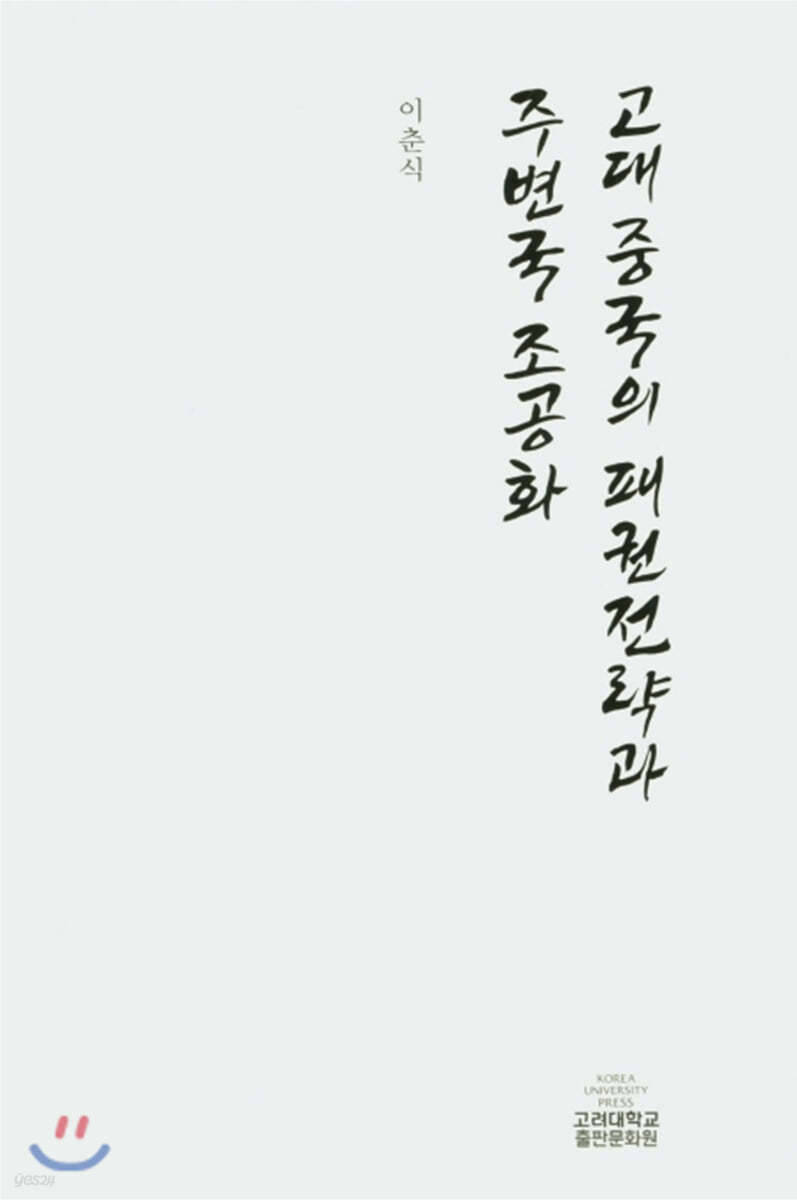 고대 중국의 패권전략과
주변국 조공화
이춘식
KOREA
UNIVERSITY
PRESS
고려대학교
출판문화원
yes24